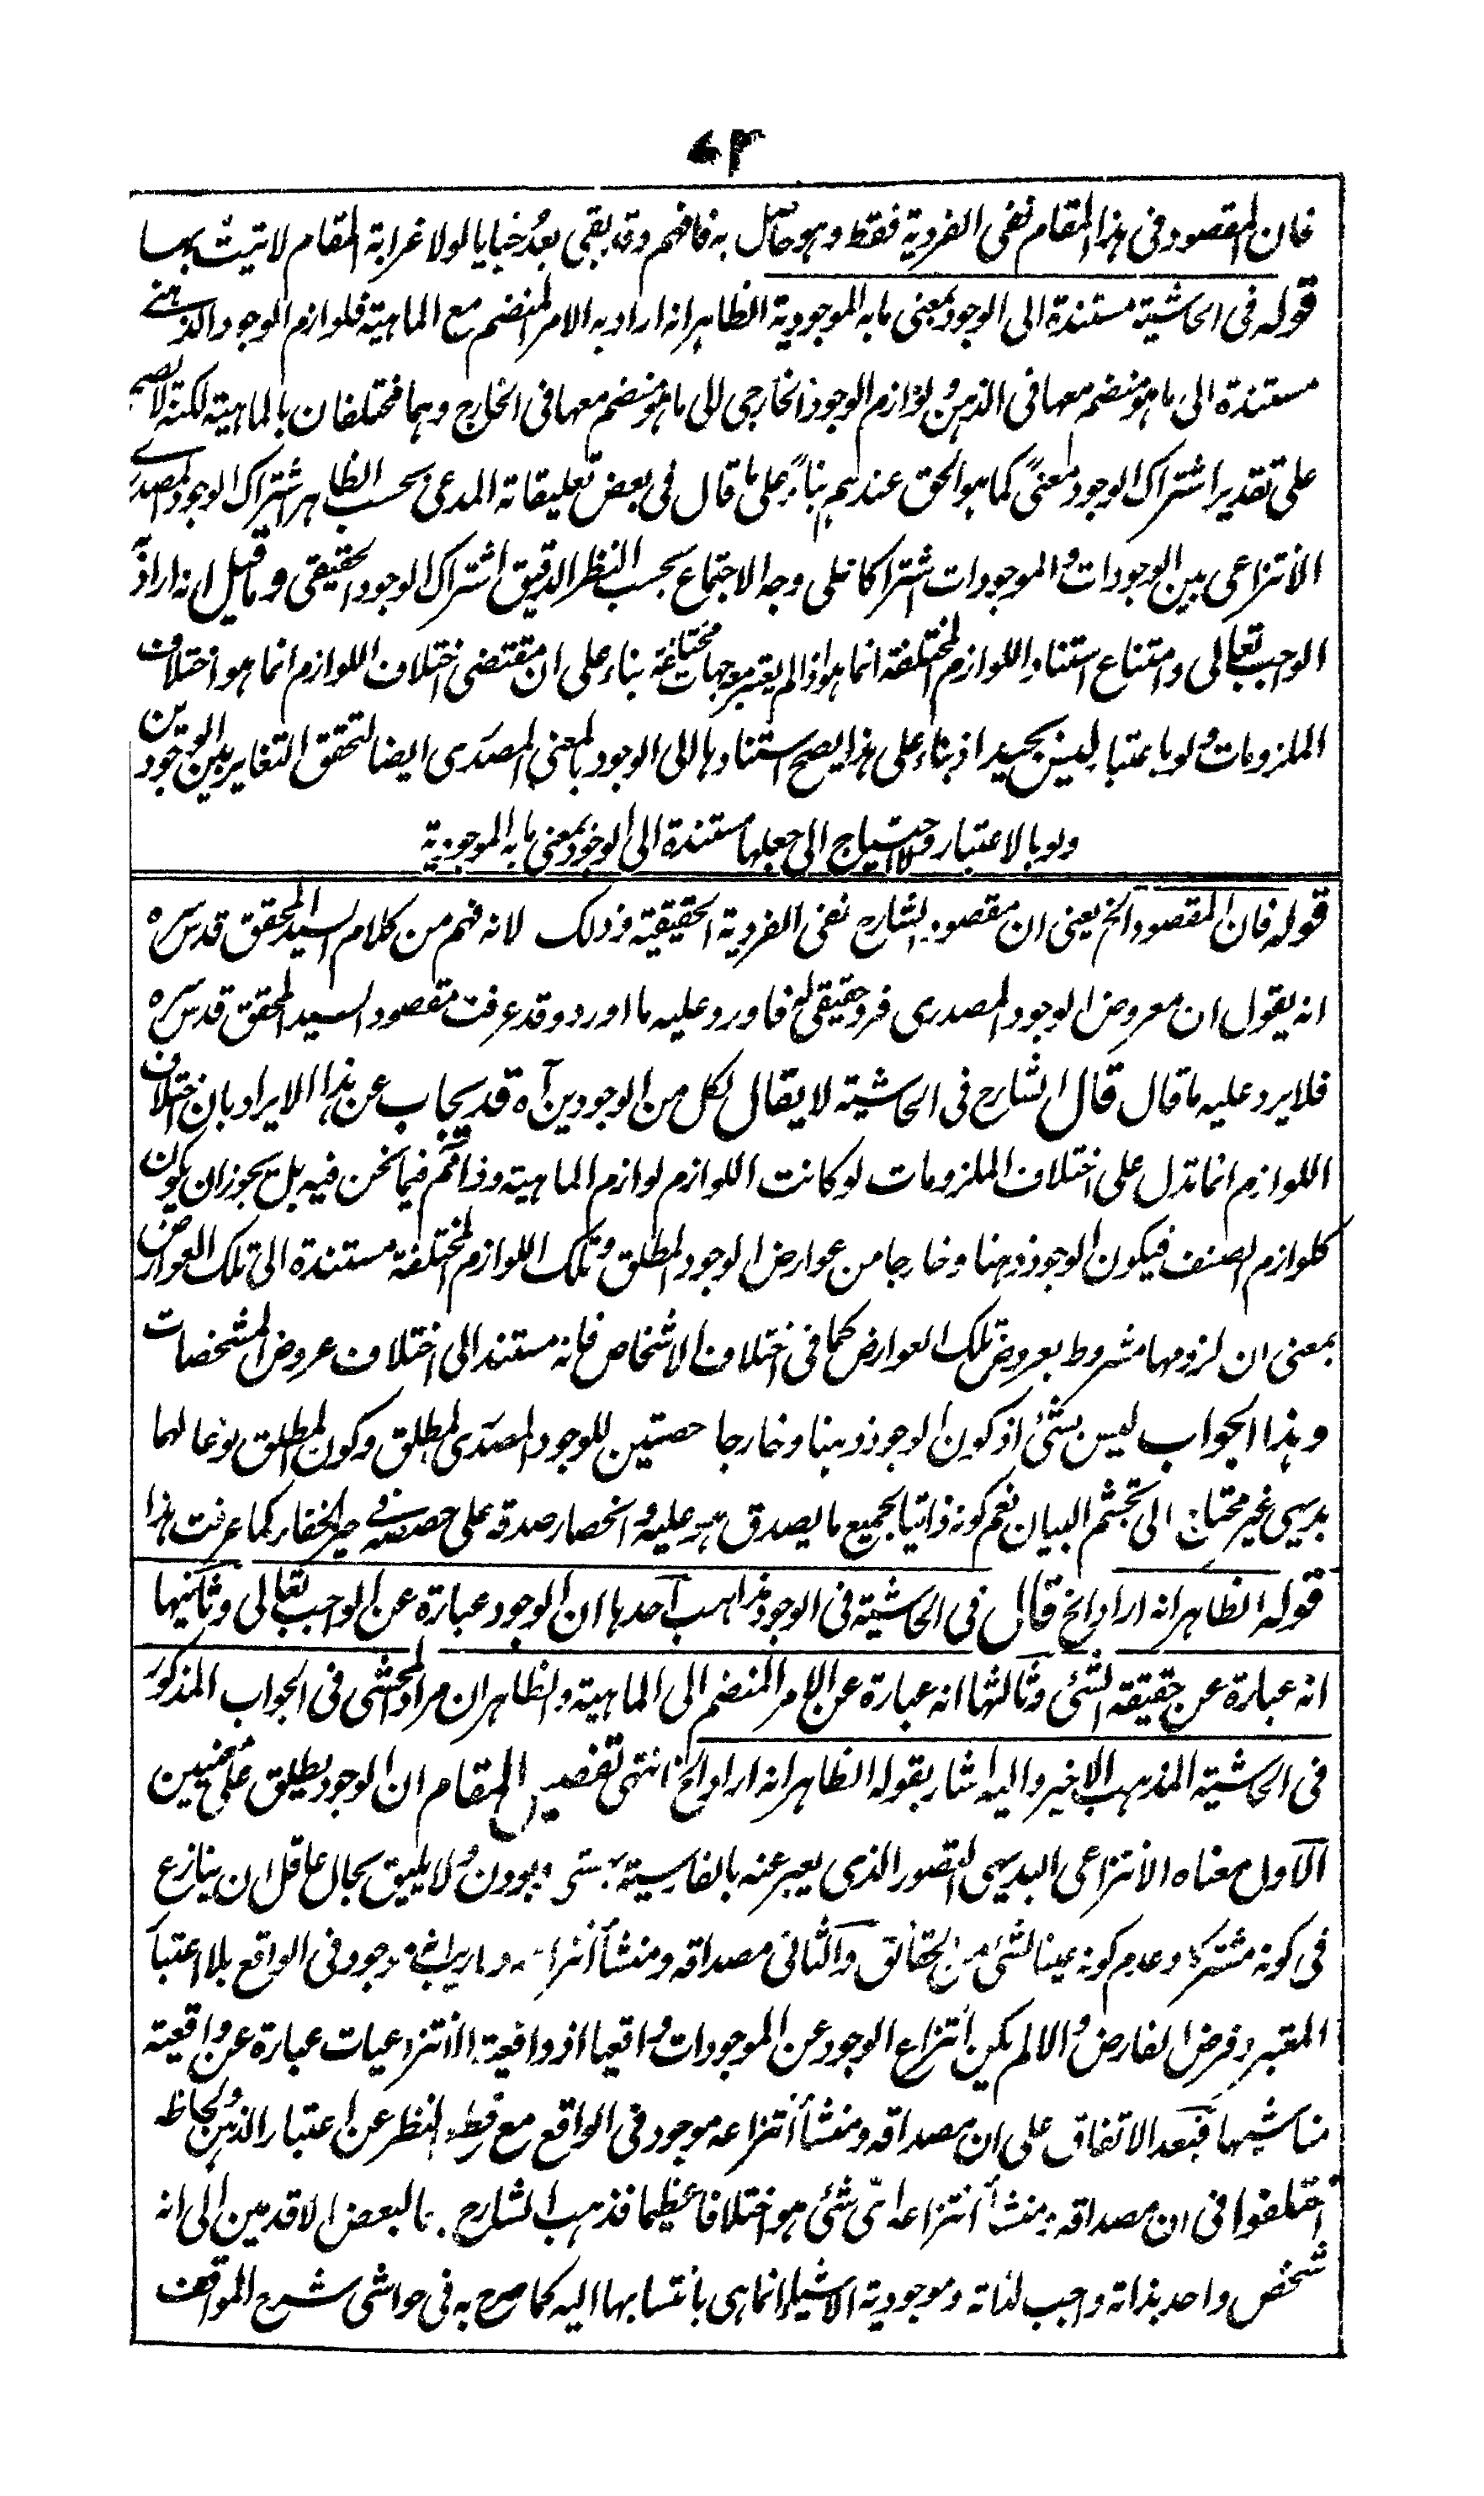 ٤٣
فان المقصود فى هذا المقام نفى الفردية فقط وهو حاصل به فافهم وقد بقى بعد خبايا لولا غرابة المقام لاتيت بها
قوله فى الحاشية مستندة الى الوجود بمعنى ما به الموجودية الظاهر انه اراد به الامر المنضم مع الماهية فلوازم الوجود الذهنى
مستندة الى ما هو منضم معها فى الذهن ولوازم الوجود الخارجى الى ما هو منضم معها فى الخارج وهما مختلفان بالماهية لكنه لا يصح
على تقدير اشتراك الوجود معنىً كما هو الحق عندهم بناءً على ما قال فى بعض تعليقاته المدعى بحسب الظاهر اشتراك الوجود المصدرى
الانتزاعى بين الوجودات والموجودات اشتراكا على وجه الاجتماع بحسب النظر الدقيق اشتراك الوجود الحقيقى وما قيل انه اراد به
الواجب تعالى وامتناع استناد اللوازم المختلفة انما هو اذا لم يعتبر معه جهات مختلفة بناء على ان مقتضى اختلاف اللوازم انما هو اختلاف
الملزومات ولو باعتبار ليس بجيد اذ بناء على هذا يصح استنادها الى الوجود بالمعنى المصدرى ايضا لتحقق التغاير بين الوجودين
ولو بالاعتبار ولا احتياج الى جعلها مستندة الى الوجود بمعنى ما به الموجودية
قوله فان المقصود الخ يعنى ان مقصود الشارح نفى الفردية الحقيقية وذلك لانه فهم من كلام السيد المحقق قدس سره
انه يقول ان معروض الوجود المصدرى فرد حقيقى له فاورد عليه ما اورد وقد عرفت مقصود السيد المحقق قدس سره
فلا يرد عليه ما قال قال الشارح فى الحاشية لا يقال لكل من الوجودين آه قد يجاب عن هذا الايراد بان اختلاف
اللوازم انما تدل على اختلاف الملزومات لو كانت اللوازم لوازم الماهية وذا فيما نحن فيه بل يجوز ان يكون
كلوازم الصنف فيكون الوجود ذهنا وخارجا من عوارض الوجود المطلق وتلك اللوازم المختلفة مستندة الى تلك العوارض
بمعنى ان لزومها مشروط بعروض تلك العوارض كما فى اختلاف الاشخاص فانه مستند الى اختلاف عروض المشخصات
وهذا الجواب ليس بشئ اذ كون الوجود ذهنا وخارجا حصتين للوجود المصدرى المطلق وكون المطلق نوعا لهما
بديهى غير محتاج الى تجشم البيان نعم كونه ذاتيا لجميع ما يصدق هو عليه وانحصار صدقه على حصصه فى حيز الخفاء كما عرفت هذا
قوله الظاهر انه اراد الخ قال فى الحاشية فى الوجود مذاهب احدها ان الوجود عبارة عن الواجب تعالى وثانيها
انه عبارة عن حقيقة الشئ وثالثها انه عبارة عن الامر المنضم الى الماهية والظاهر ان مراد المحشى فى الجواب المذكور
فى الحاشية المذهب الاخير واليه اشار بقوله الظاهر انه اراد الخ انتهى تفصيل المقام ان الوجود يطلق على معنيين
الاول معناه الانتزاعى البديهى التصور الذى يعبر عنه بالفارسية بهستى وبودن ولا يليق بحال عاقل ان ينازع
فى كونه مشتركا وعدم كونه عينا لشئ من الحقائق والثانى مصداقه ومنشأ انتزاعه موجود فى الواقع بلا اعتبار
المعتبر وفرض الفارض والا لم يكن انتزاع الوجود عن الموجودات واقعيا اذ واقعية الانتزاعيات عبارة عن واقعية
مناشيها فبعد الاتفاق على ان مصداقه ومنشأ انتزاعه موجود فى الواقع مع قطع النظر عن اعتبار الذهن ولحاظه
اختلفوا فى ان مصداقه ومنشأ انتزاعه اى شئ هو اختلافا عظيما فذهب الشارح تبعا لبعض الاقدمين الى انه
شخص واحد بذاته واجب لذاته وموجودية الاشياء انما هى بانتسابها اليه كما صرح به فى حواشى شرح المواقف